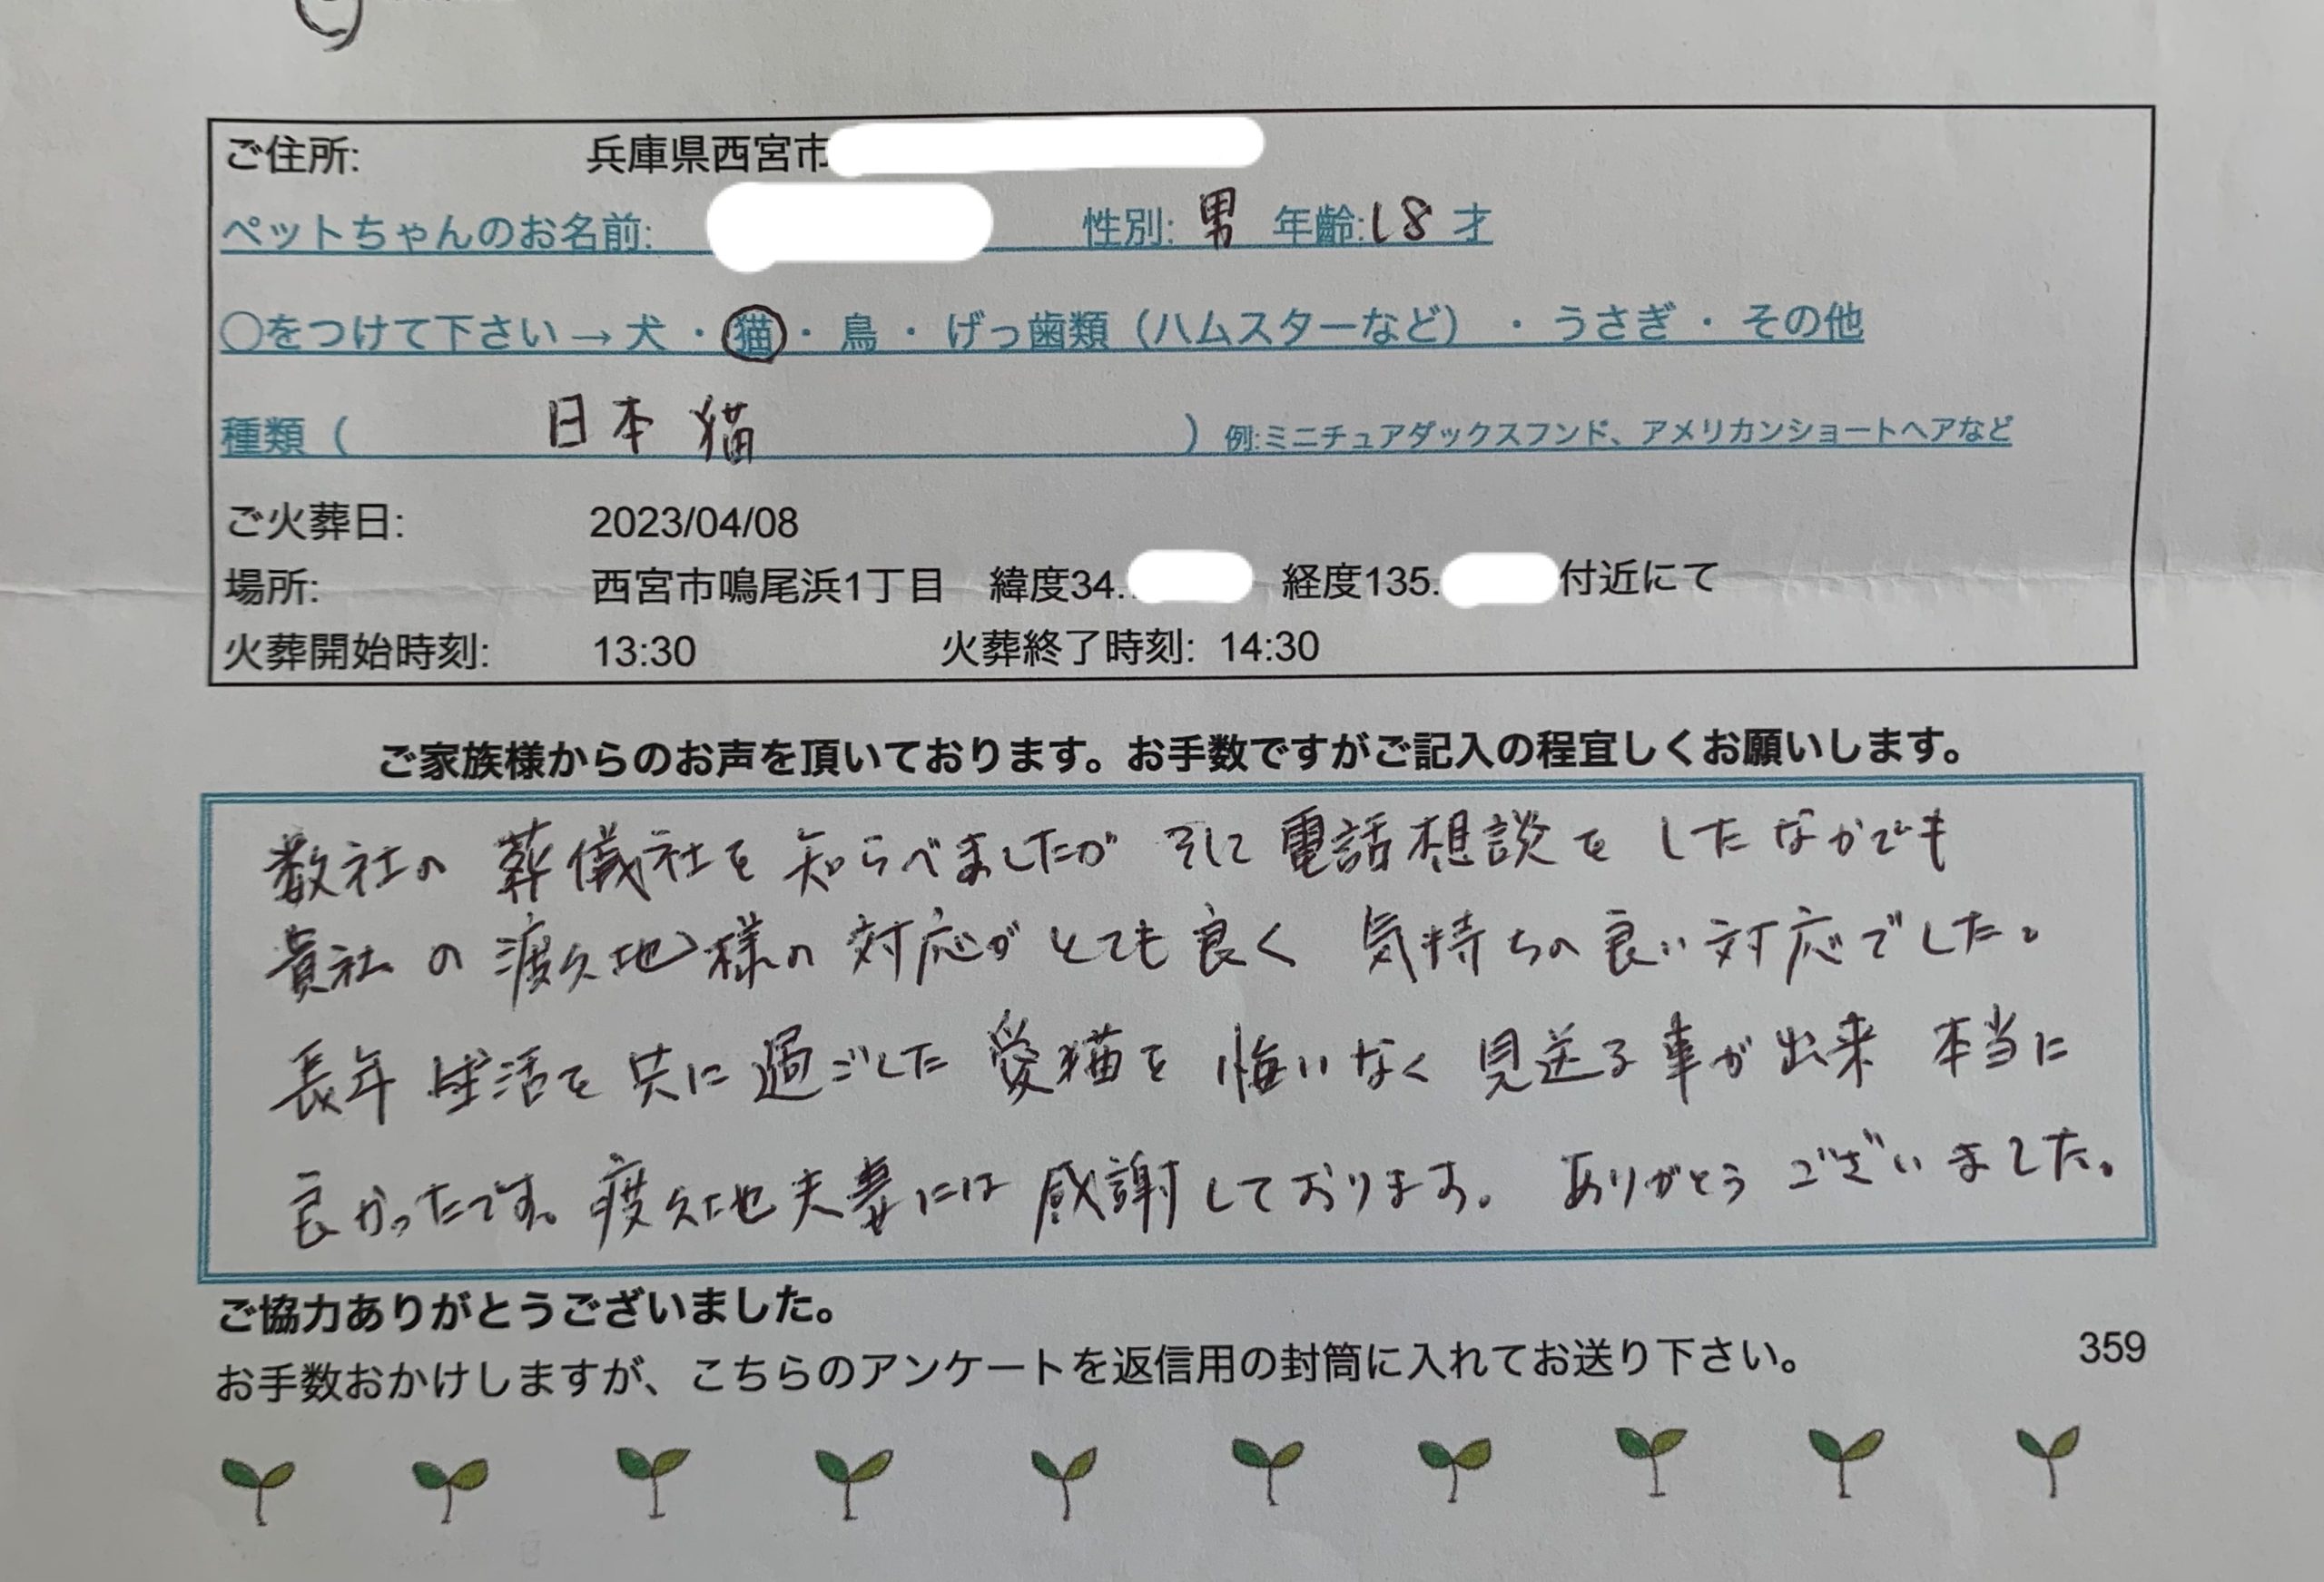 ご住所: 兵庫県西宮市
ペットちゃんのお名前: 性別: 男 年齢:18才
○をつけて下さい→犬・猫・鳥・げっ歯類（ハムスターなど）・うさぎ・その他
種類（ 日本猫 ）例:ミニチュアダックスフンド、アメリカンショートヘアなど
ご火葬日: 2023/04/08
場所: 西宮市鳴尾浜1丁目 緯度34. 経度135. 付近にて
火葬開始時刻: 13:30 火葬終了時刻: 14:30
ご家族様からのお声を頂いております。お手数ですがご記入の程宜しくお願いします。
数社の葬儀社を知らべましたが そして電話想談をしたなかでも
貴社の渡久地様の対応がとても良く 気持ちの良い対応でした。
長年生活を共に過ごした愛猫を悔いなく見送る事が出来 本当に
良かったです。渡久地夫妻には感謝しております。ありがとうございました。
ご協力ありがとうございました。
お手数おかけしますが、こちらのアンケートを返信用の封筒に入れてお送り下さい。 359